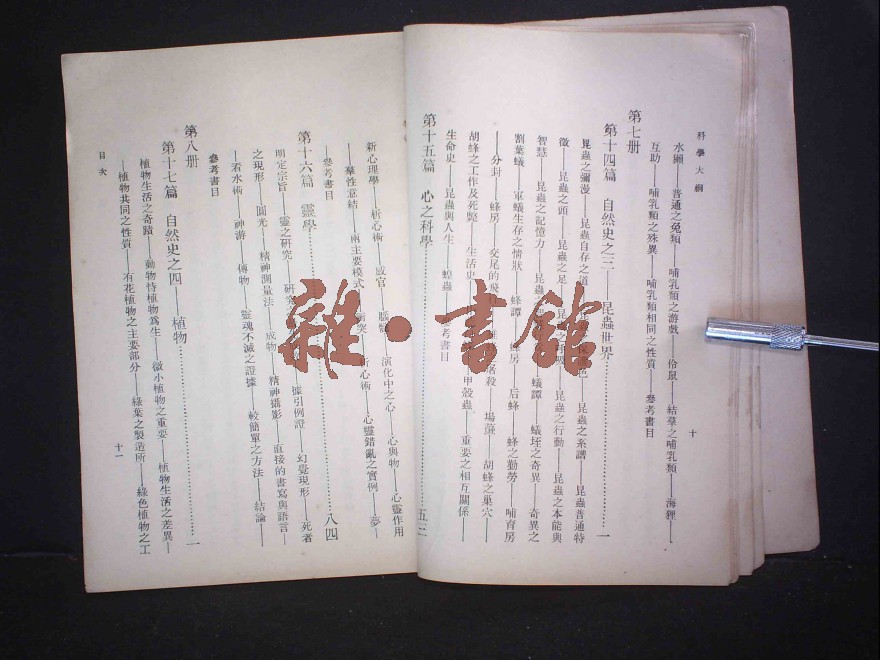 科學大綱
十
水獺——普通之兔類——哺乳類之游戲——伶鼠——結羣之哺乳類——海狸——
互助——哺乳類之殊異——哺乳類相同之性質——參考書目
第七册
第十四篇 自然史之三——昆蟲世界 一
昆蟲之彌漫——昆蟲自存之道 昆蟲之系譜——昆蟲普通特
徵——昆蟲之頭——昆蟲之足 昆蟲之行動——昆蟲之本能與
智慧——昆蟲之記憶力 蟻譚——蟻垤之奇異——奇異之
割葉蟻——軍蟻生存之情狀——蜂譚 后蜂——蜂之勤勞——哺育房
——分封——蜂房——交尾的飛 塲 胡蜂之巢穴——
胡蜂之工作及死斃——生活史 甲殼蟲——重要之相互關係——
生命史——昆蟲與人生——蝗蟲 考書目
第十五篇 心之科學 五三
新心理學——析心術——感官 演化中之心——心與物——心靈作用
——羣性意結——兩主要模式 析心術——心靈錯亂之實例——夢——
參考書目
第十六篇 靈學 八四
明定宗旨——靈之研究 據引例證 幻覺現形——死者
之現形——圓光——精神測量法——成物——精神攝影——直接的書寫與語言——
——看水術——神游——傳物——靈魂不滅之證據——較簡單之方法——結論——
參考書目
第八册
第十七篇 自然史之四——植物 一
植物生活之奇蹟——動物恃植物爲生——微小植物之重要——植物生活之差異——
——植物共同之性質——有花植物之主要部分——綠葉之製造所——綠色植物之工
目次
十一
雜·書館